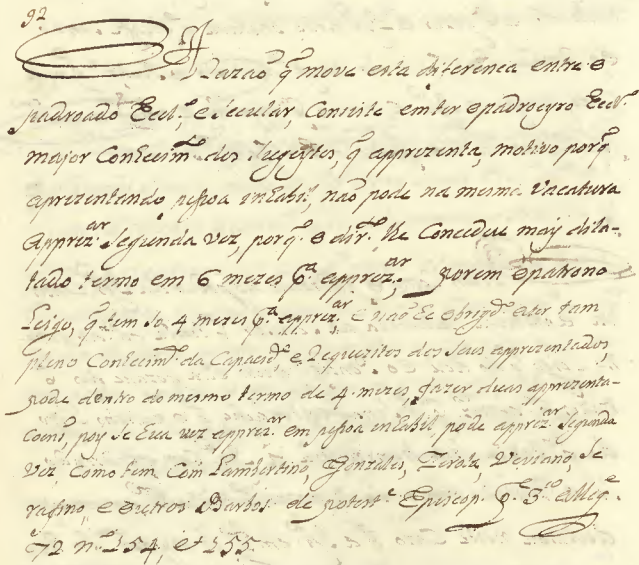 92
A
Razaõ q̃ move esta diferenca entre o
padroado Eccl.º, e Secular, Consiste em ter o padroeyro Eccl.º
major Conhecim.to dos sugeytos, q̃ apprezenta, motivo porq̃
aprezentando pessoa inhabil, naõ pode na mesma Vacatura
apprez.ar Segunda vez, porq̃ o dir.to lhe Concedeu may dila-
tado termo em 6 mezes p.a apprez.ar; porem o patrono
Leigo, q̃ tem só 4 mezes p.a apprez.ar e naõ he obrig.do a ter tam
pleno Conhecim.to da Capacid.e, e Requezitos dos seus apprezentados,
pode dentro do mesmo termo de 4 mezes fazer duas apprezenta-
coens, poy se hua vez apprez.ar em pessoa inhabil pode apprez.ar Segunda
Vez, como tem Com Lambertino, Gonzales, Viviano, Se
rafino, e outros Barbos. de potest.e Episcop. p.e 3.ª alleg.e
72 n.º 154, et 155.